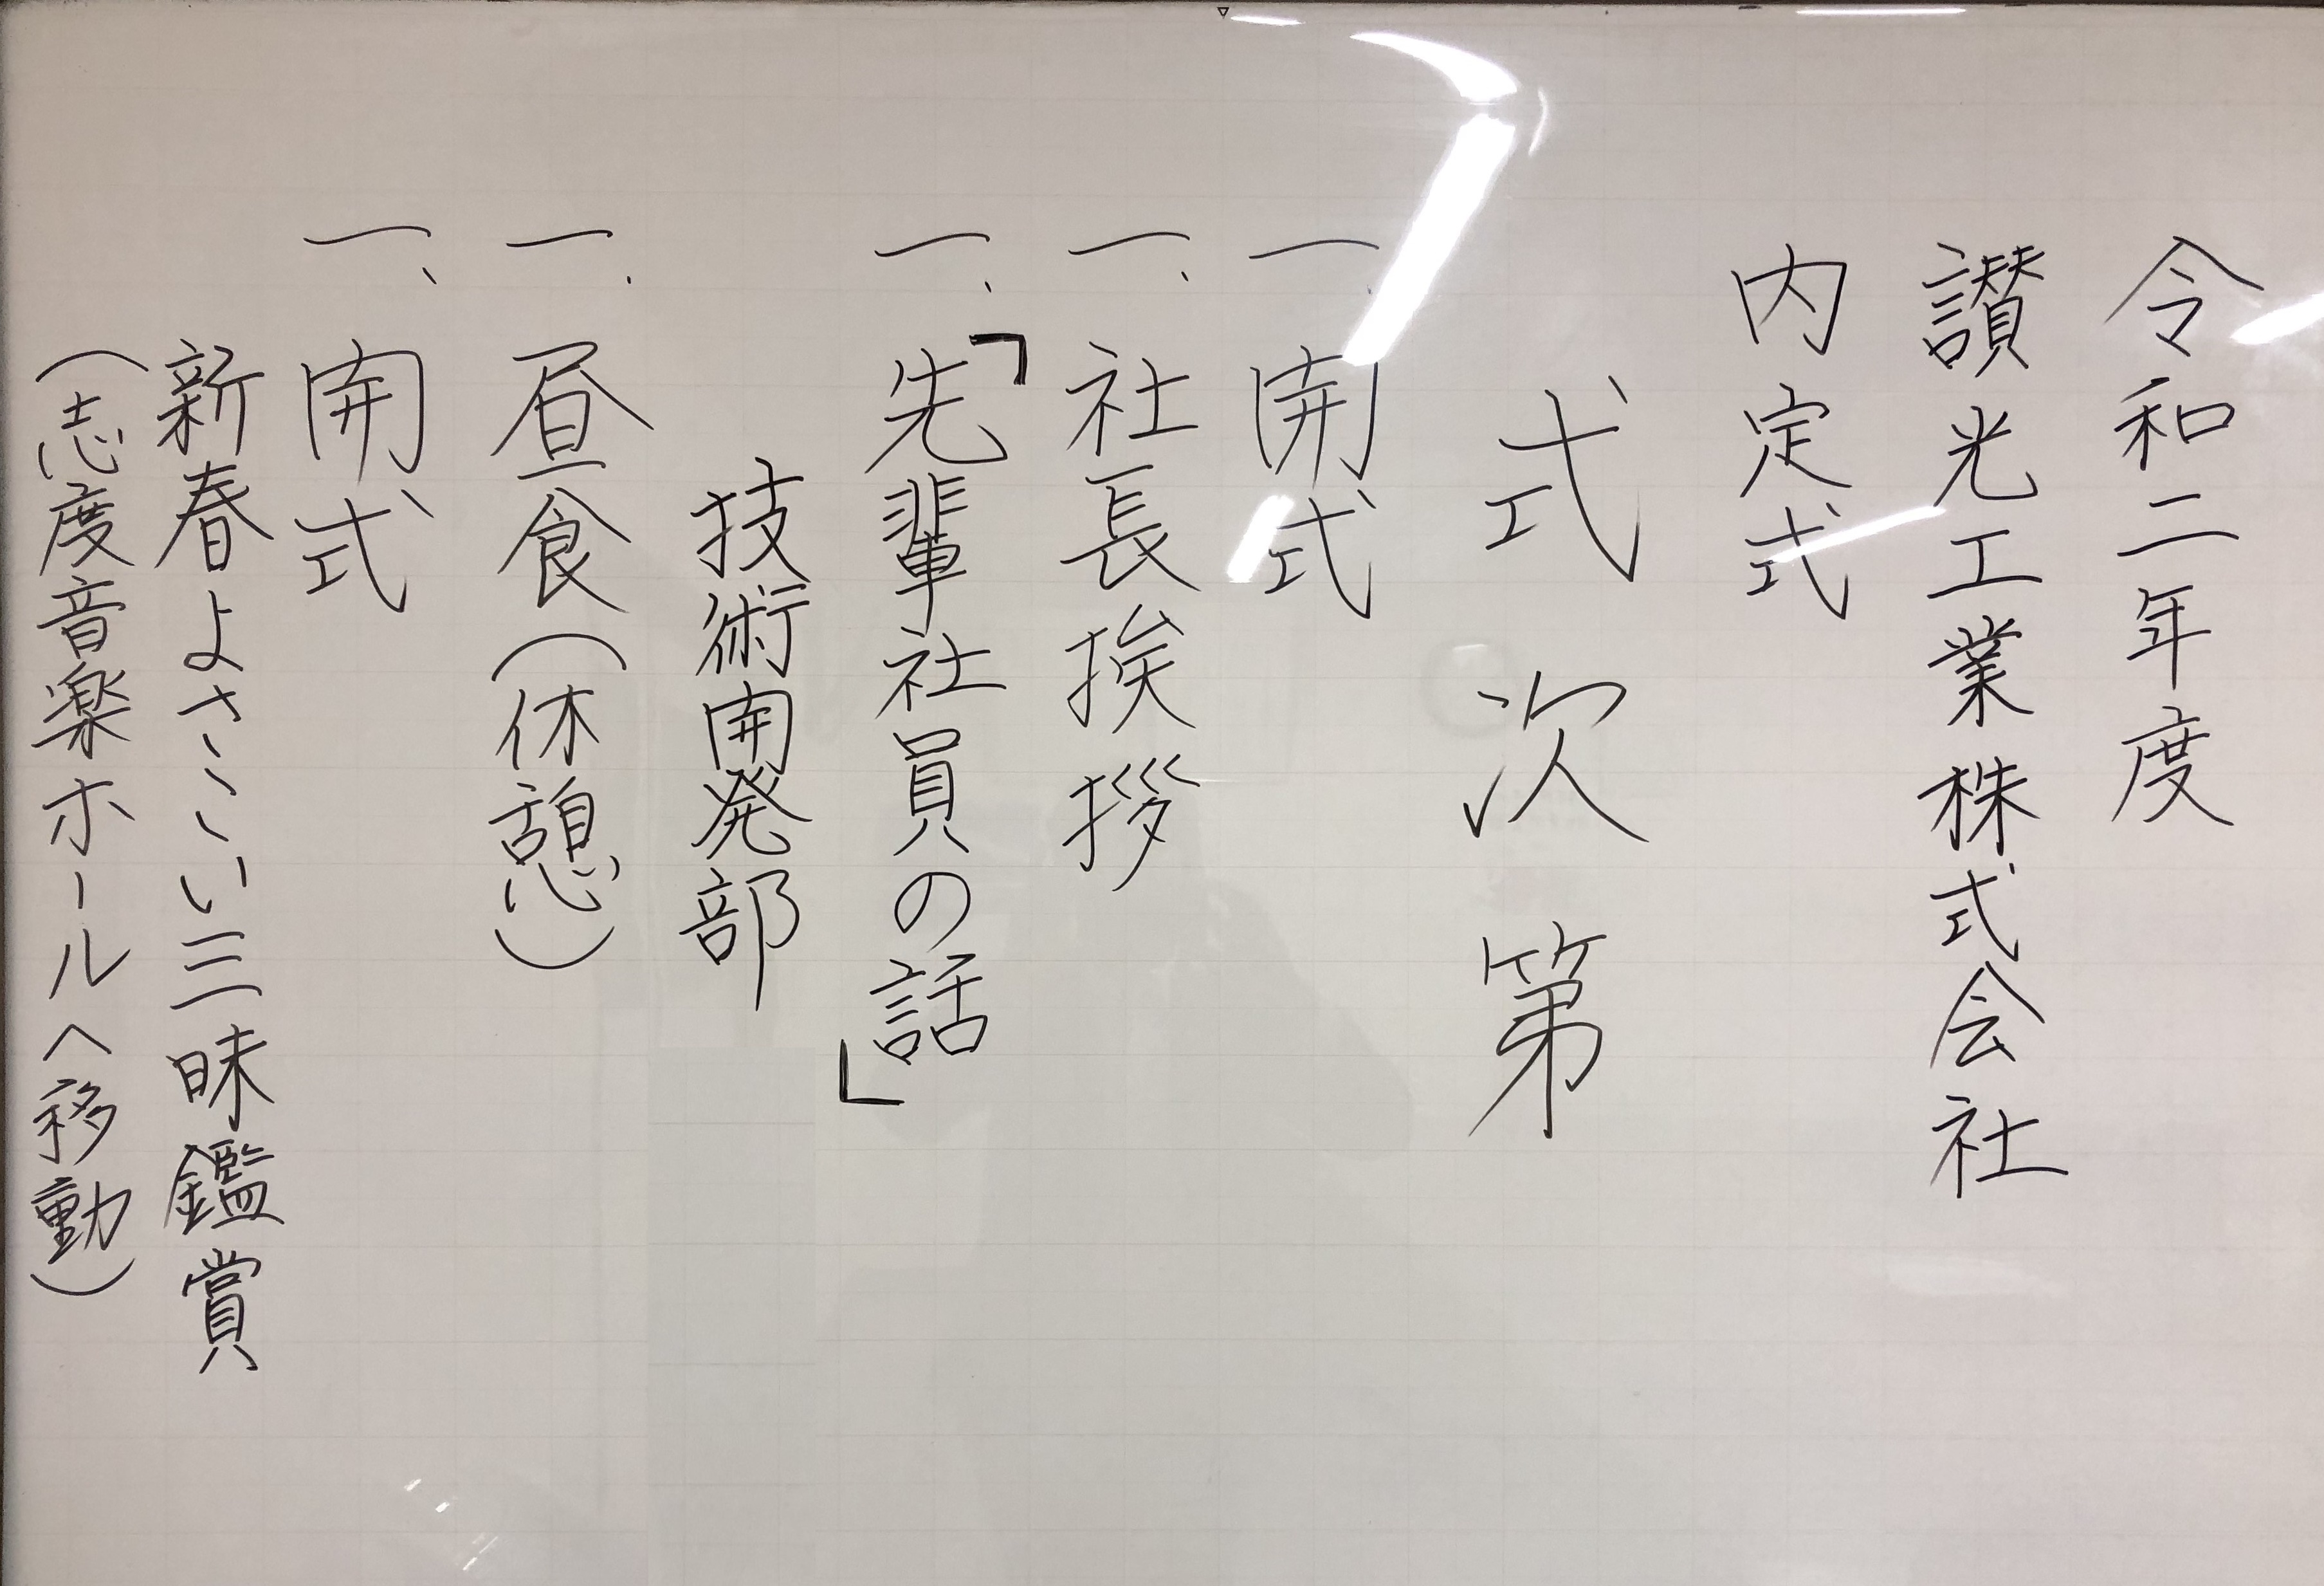 令和二年度
讃光工業株式会社
内定式
式次第
一、開式
一、社長挨拶
一、「先輩社員の話」
技術開発部
一、昼食(休憩)
一、開式
新春よさこい三昧鑑賞
(志度音楽ホールへ移動)